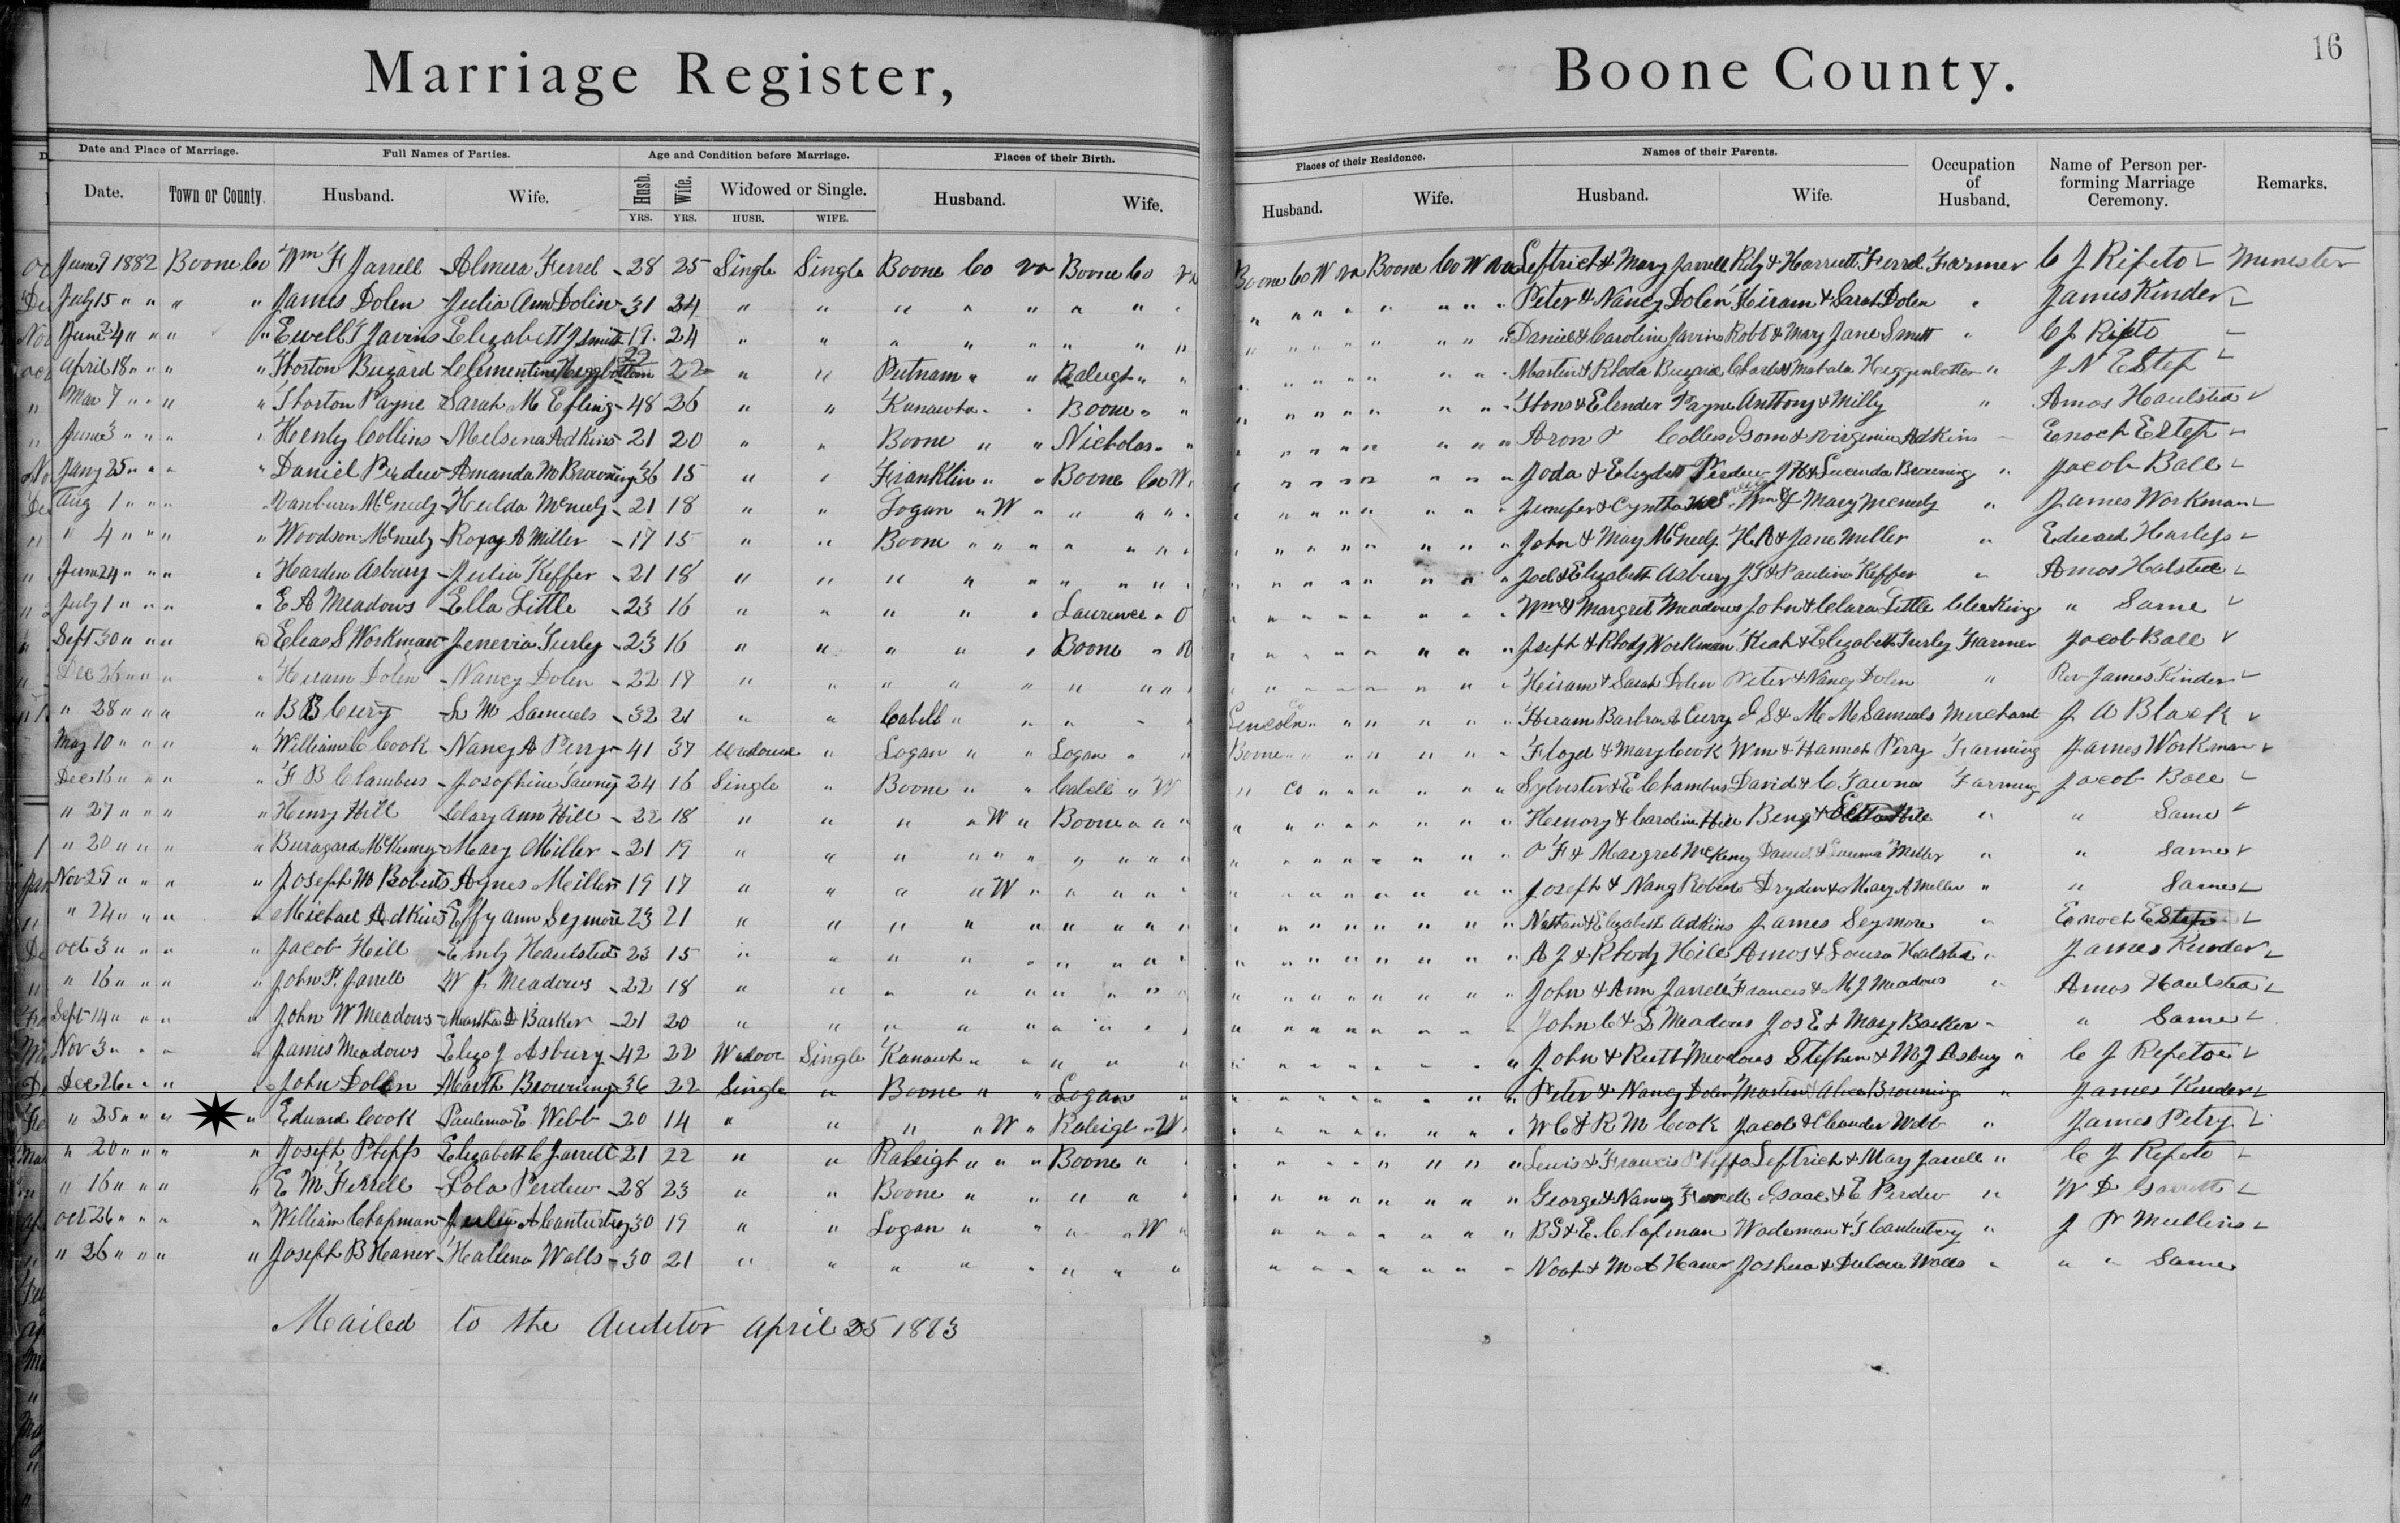 16
Marriage Register, Boone County.
Date and Place of Marriage. Full Names of Parties. Age and Condition before Marriage. Places of their Birth. Places of their Residence. Names of their Parents. Occupation of Husband. Name of Person performing Marriage Ceremony. Remarks.
Date. Town or County. Husband. Wife. Husb. Wife. Widowed or Single. Husband. Wife. Husband. Wife. Husband. Wife.
YRS. YRS. HUSB. WIFE.
June 9 1882 Boone Co Wm F Jarrell - Almera Ferrel - 28 25 Single Single Boone Co va Boone Co va Boone Co W va Boone Co W va Leftrict & Mary Jarrell Rily & Harriett Ferrel Farmer C J Ripeto Minester
July 15 " " " " James Dolen - Julia Ann Dolin - 31 24 " " " " " " " " Peter & Nancy Dolen Heiram & Sarah Dolen " James Kinder
June 24 " " " Ewell T Javins Elizabeth J Smith 19 24 " " " " " " " " Daniel & Caroline Javins Robt & Mary Jane Smith " C J Ripeto
April 18 " " " Horton Buzard - Clementine Higgbottom 22 22 " " Putnam " " Raleigh " " Martin & Rhoda Buzard Charles & Mahala Higgenbottom " J N Estep
Mar 7 " " " Thorton Payne - Sarah M Efling - 48 26 " " Kanawha " " Boone " " & Elender Payne Anthony & Milly " Amos Haulstea
June 3 " " " Henly Collins - Melsina Adkins - 21 20 " " Boone " " Nicholas " " Aron Collins Isom & Virginia Adkins Enoch Estep
Jany 25 " " " Daniel Perdew - Amanda M Browning 36 15 " " Franklin " " Boone Co W Joda & Elizabeth Perdew J H & Lucinda Browning " Jacob Ball
Aug 1 " " " Vanburen McNeely - Hulda McNeely - 21 18 " " Logan " W " " " " Jenifer & Cyntha Wm & Mary McNeely " James Workman
" 4 " " " Woodson McNeely - Roxy A Miller - 17 15 " " Boone " " " " " " John & Mary McNeely H A & Jane Miller " Edward Harless
June 24 " " " Harden Asbury - Julia Keffer - 21 18 " " " " " " " " Joel & Elizabeth Asbury J S & Paulina Keffer " Amos Halsted
July 1 " " " E A Meadows - Ella Little - 23 16 " " " " " Laurence " O Wm & Margret Meadows John & Clara Little Clerking " Same
Sept 30 " " " Elias S Workman - Jenevia Turley - 23 16 " " " " " Boone " Joseph & Rhody Workman & Elizabeth Turley Farmer Jacob Ball
Dec 26 " " " Heiram Dolen - Nancy Dolen - 22 19 " " " " " " " " Heiram & Sarah Dolen Peter & Nancy Dolen " Rev James Kinder
" 28 " " " B B Curry - L M Samuels - 32 21 " " Cabell " " " " " Lincoln Co " " Hiram Barbra A Curry I S & M M Samuels Merchant J A Black
May 10 " " " William C Cook - Nancy A Perry - 41 37 Widowed " Logan " " Logan " " Boone " " Floyd & Mary Cook Wm & Hannah Perry Farming James Workman
Dec 16 " " " F B Chambers - Josephine Tawny - 24 16 Single " Boone " " Cabell " W " Co " " Sylvester & E Chambers David & C Tawna Farming Jacob Ball
" 27 " " " Henry Hill Clary Ann Hill - 22 18 " " " " W " Boone " " " Henory & Caroline Hill Benj & Hill " " Same
" 20 " " " Buragard McKenny - Mary Miller - 21 19 " " " " " " " " O F & Margret McKeny Daniel & Miller " " Same
Nov 29 " " " Joseph M Roberts Agnes Miller - 19 17 " " " " W " " " " Joseph & Nancy Roberts Dryden & Mary A Miller " " Same
" 24 " " " Michael Adkins Effy Ann Seymore 23 21 " " " " " " " " Nathan & Elizabeth Adkins James Seymore " Enoch Estep
Oct 3 " " " Jacob Hill - Emly Haulsted 23 15 " " " " " " " " A J & Rhody Hill Amos & Louisa Halsted " James Kinder
" 16 " " " John P. Jarrell W J Meadows - 22 18 " " " " " " " " John & Ann Jarrell Francis & M J Meadows " Amos Haulstea
Sept 14 " " " John W Meadows - Martha D Barker - 21 20 " " " " " " " " John C & S Meadows Jos E & Mary Barker " " Same
Nov 3 " " " James Meadows Eliza J Asbury - 42 22 Single Kanawh " " " " " John & Ruth Meadows Stephen & M J Asbury " C J Repetoe
Dec 26 " " " John Dolen - Marth Browning - 36 22 Single " Boone " " Logan " Peter & Nancy Dolen Martin Alica Browning " James Kinder
" 25 " " " Edward Cook Paulema E Webb - 20 14 " " " " W " Raleigh " W W C & R M Cook Jacob & Webb " James Petry
" 20 " " " Joseph Phipps Elizabeth C Jarrell - 21 22 " " Raleigh " " " Boone " Lewis & Francis Phipps Leftrich & Mary Jarrell " C J Repeto
" 16 " " " E M Ferrell - Lola Perdew - 28 23 " " Boone " " " " George & Nancy Ferrell Isaac & E Perdew " W D Garrett
Oct 26 " " " William Chapman - Julia A Canturbey 30 19 " " Logan " " " " W B S & E Chapman Wademan & S Canterbery " J P Mullins
" 26 " " " Joseph B Haner - Hallena Walls - 30 21 " " " " " " " " Noah & M A Haner Joshua & Walls " " " Same
Mailed to the Auditor April 25 1883